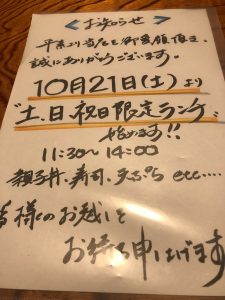 お知らせ
平素より当店を御愛顧頂き、
誠にありがとうございます。
10月21日(土)より
"土、日、祝日限定ランチ"
始めます!!
11:30〜14:00
親子丼、寿司、天ぷら etc....
皆様のお越しを
お待ち申し上げます